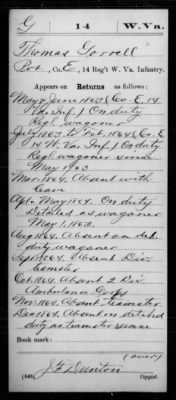 G | 14 | W. Va.
Thomas Gorrell
Pvt., Co. E, 14 Reg't W. Va. Infantry.
Appears on Returns as follows:
May & June 1863 (Co. E, 14
Va. Inf.) On duty
Regt. wagoner
July 1863 to Feb. 1864 (Co. E
14 W. Va. Inf.) On duty
Regl. wagoner since
May 1863
Mar. 1864. Absent with
leave
Apl. & May 1864. On duty
Detailed as wagoner
May 1, 1863
Aug. 1864. Absent on det.
duty wagoner
Sept. 1864. Absent Div.
teamster
Oct. 1864. Absent 2 Div.
Ambulance Corps
Nov. 1864. Absent teamster
Dec. 1864. Absent on detached
duty as teamster since
Book mark:
(over)
J F Dunton
Copyist.